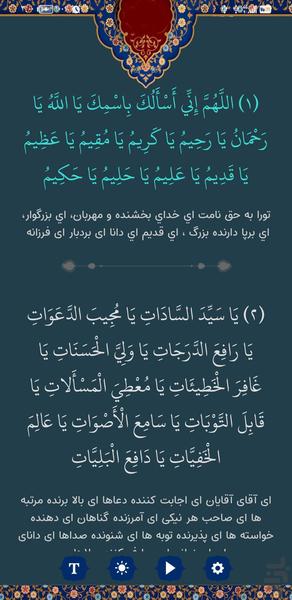 (۱) اللَّهُمَّ إِنِّي أَسْأَلُكَ بِاسْمِكَ يَا اللَّهُ يَا
رَحْمَانُ يَا رَحِيمُ يَا كَرِيمُ يَا مُقِيمُ يَا عَظِيمُ
يَا قَدِيمُ يَا عَلِيمُ يَا حَلِيمُ يَا حَكِيمُ
تورا به حق نامت اي خداي بخشنده و مهربان، اي بزرگوار،
اي برپا دارنده بزرگ ، اي قديم اي دانا ای بردبار ای فرزانه
(۲) يَا سَيِّدَ السَّادَاتِ يَا مُجِيبَ الدَّعَوَاتِ
يَا رَافِعَ الدَّرَجَاتِ يَا وَلِيَّ الْحَسَنَاتِ يَا
غَافِرَ الْخَطِيئَاتِ يَا مُعْطِيَ الْمَسْأَلاتِ يَا
قَابِلَ التَّوْبَاتِ يَا سَامِعَ الْأَصْوَاتِ يَا عَالِمَ
الْخَفِيَّاتِ يَا دَافِعَ الْبَلِيَّاتِ
ای آقای آقایان ای اجابت کننده دعاها ای بالا برنده مرتبه
ها ای صاحب هر نیکی ای آمرزنده گناهان ای دهنده
خواسته ها ای پذیرنده توبه ها ای شنونده صداها ای دانای
T